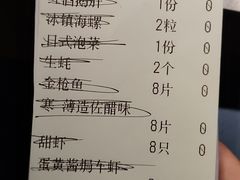 1份 0
冰镇海螺 2粒 0
日式泡菜 1份 0
生蚝 2个 0
金枪鱼 8片 0
寒 薄造佐醋味
8片 0
甜虾 8只 0
蛋黄酱焗车虾